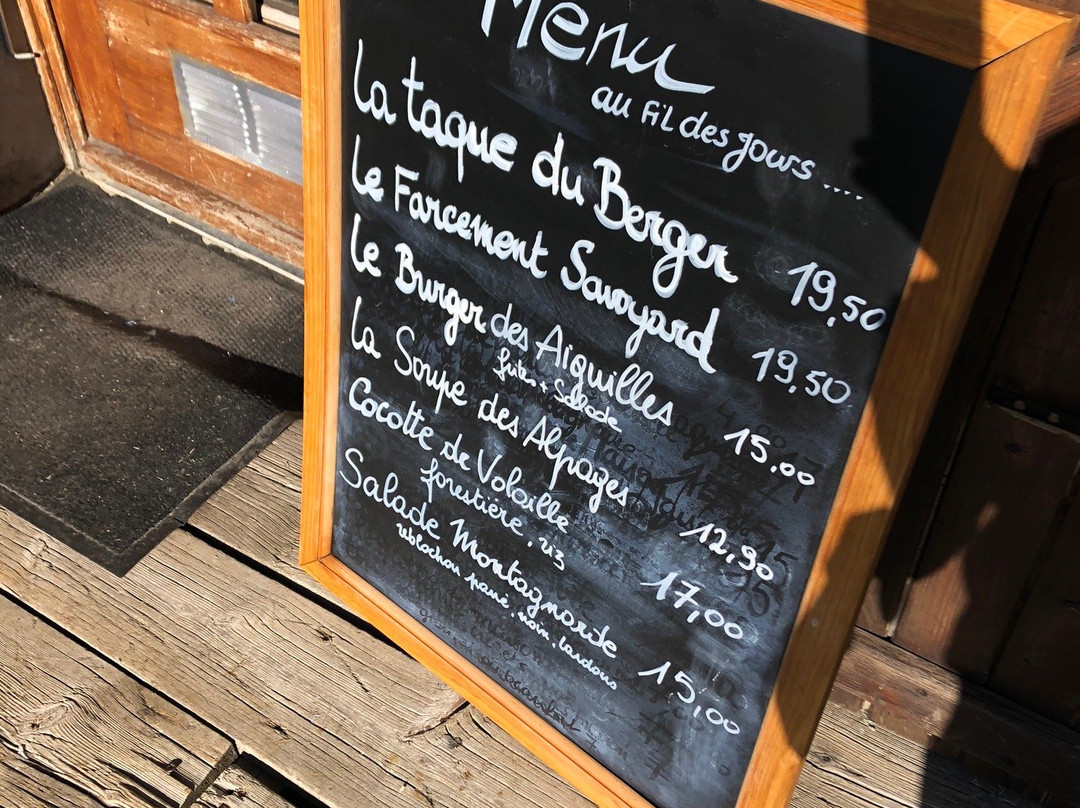 Menu
au fil des jours ....
la taque du Berger 19,50
le Farcement Savoyard 19,50
le Burger des Aiguilles 15,00
frites + Salade
la Soupe des Alpages 12,90
Cocotte de Volaille 17,00
forestière, riz
Salade Montagnarde 15,00
reblochon pané, noix, lardons